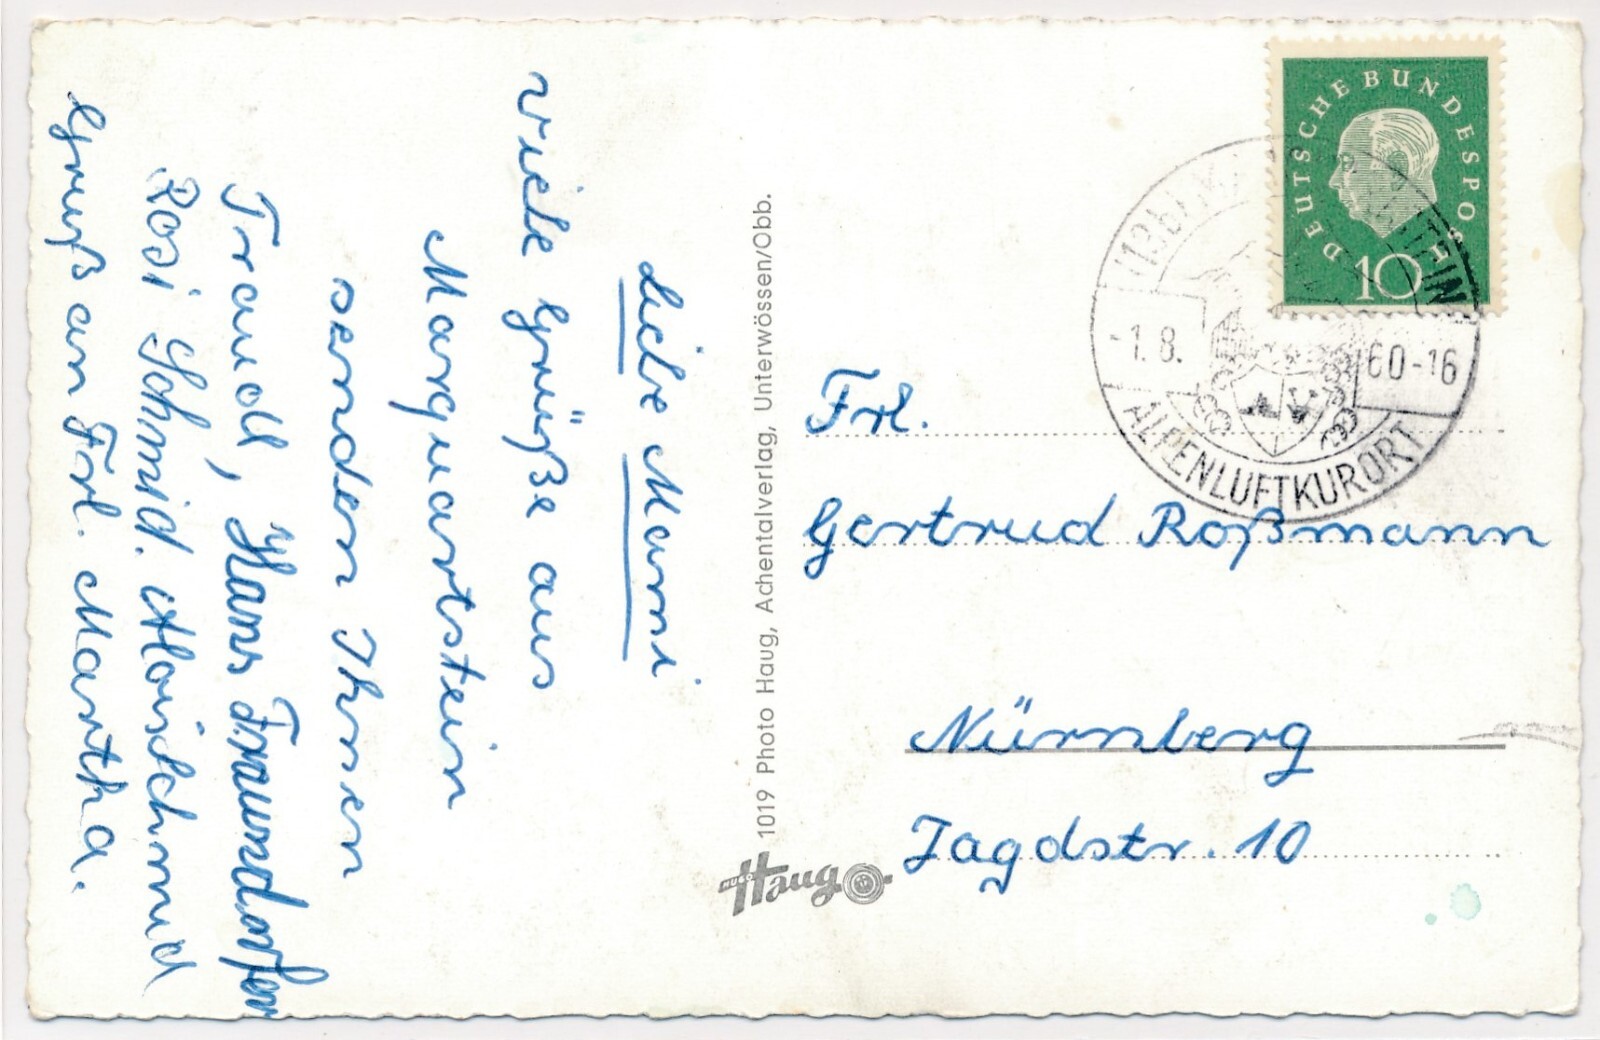 Liebe Mami
viele Grüße aus
Marquartstein
senden Ihnen
Traudl, Hans Fraundorfer
Rosi Schmid. Alois Schmid
Gruß an Frl. Martha.
1019 Photo Haug, Achentalverlag, Unterwössen/Obb.
HUGO Haug
DEUTSCHE BUNDESPOST
10
(13b)
-1.8.
60-16
ALPENLUFTKURORT
Frl.
Gertrud Roßmann
Nürnberg
Jagdstr. 10